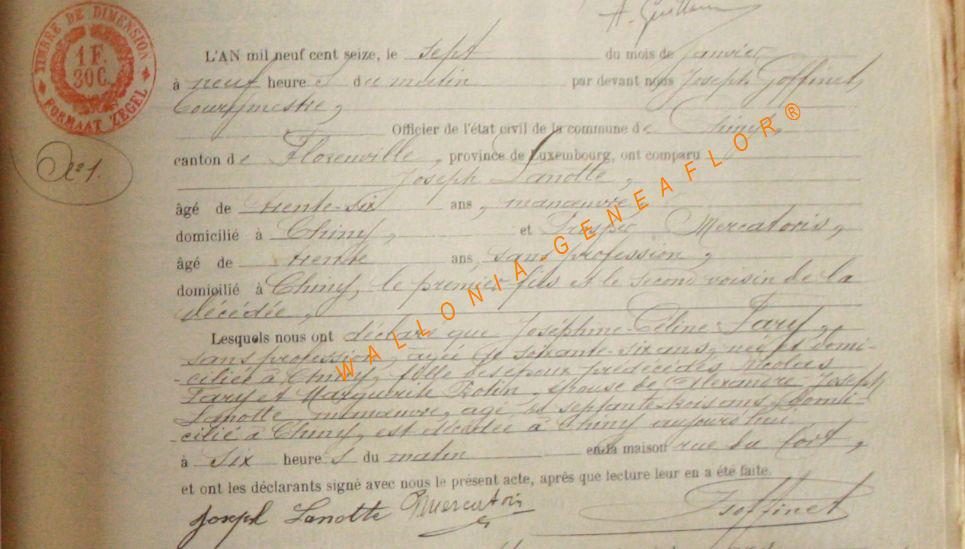 TIMBRE DE DIMENSION
1 F.
30 C.
FORMAAT ZEGEL
N° 1.
L'AN mil neuf cent seize, le sept du mois de Janvier
à neuf heure s du matin par devant nous Joseph Goffinet,
Bourgmestre,
Officier de l'état civil de la commune de Chiny,
canton de Florenville, province de Luxembourg, ont comparu
Joseph Lanotte,
âgé de trente-six ans, manœuvre
domicilié à Chiny, et Mercatoris,
âgé de trente ans, sans profession,
domicilié à Chiny, le premier fils et le second voisin de la
décédée,
Lesquels nous ont déclaré que Joséphine Céline Pary,
sans profession, agée de soixante-six ans, née et domi-
-ciliée à Chiny, fille des époux prédécédés Nicolas
Pary et Marguerite Rolin, épouse de Alexandre Joseph
Lanotte manœuvre, agé de septante-trois ans, domi-
-cilié à Chiny, est décédée à Chiny aujourd'hui
à six heure s du matin en la maison rue du Fort,
et ont les déclarants signé avec nous le présent acte, après que lecture leur en a été faite.
Joseph Lanotte Mercatoris JGoffinet
WALLONIA GENEAFLOR®